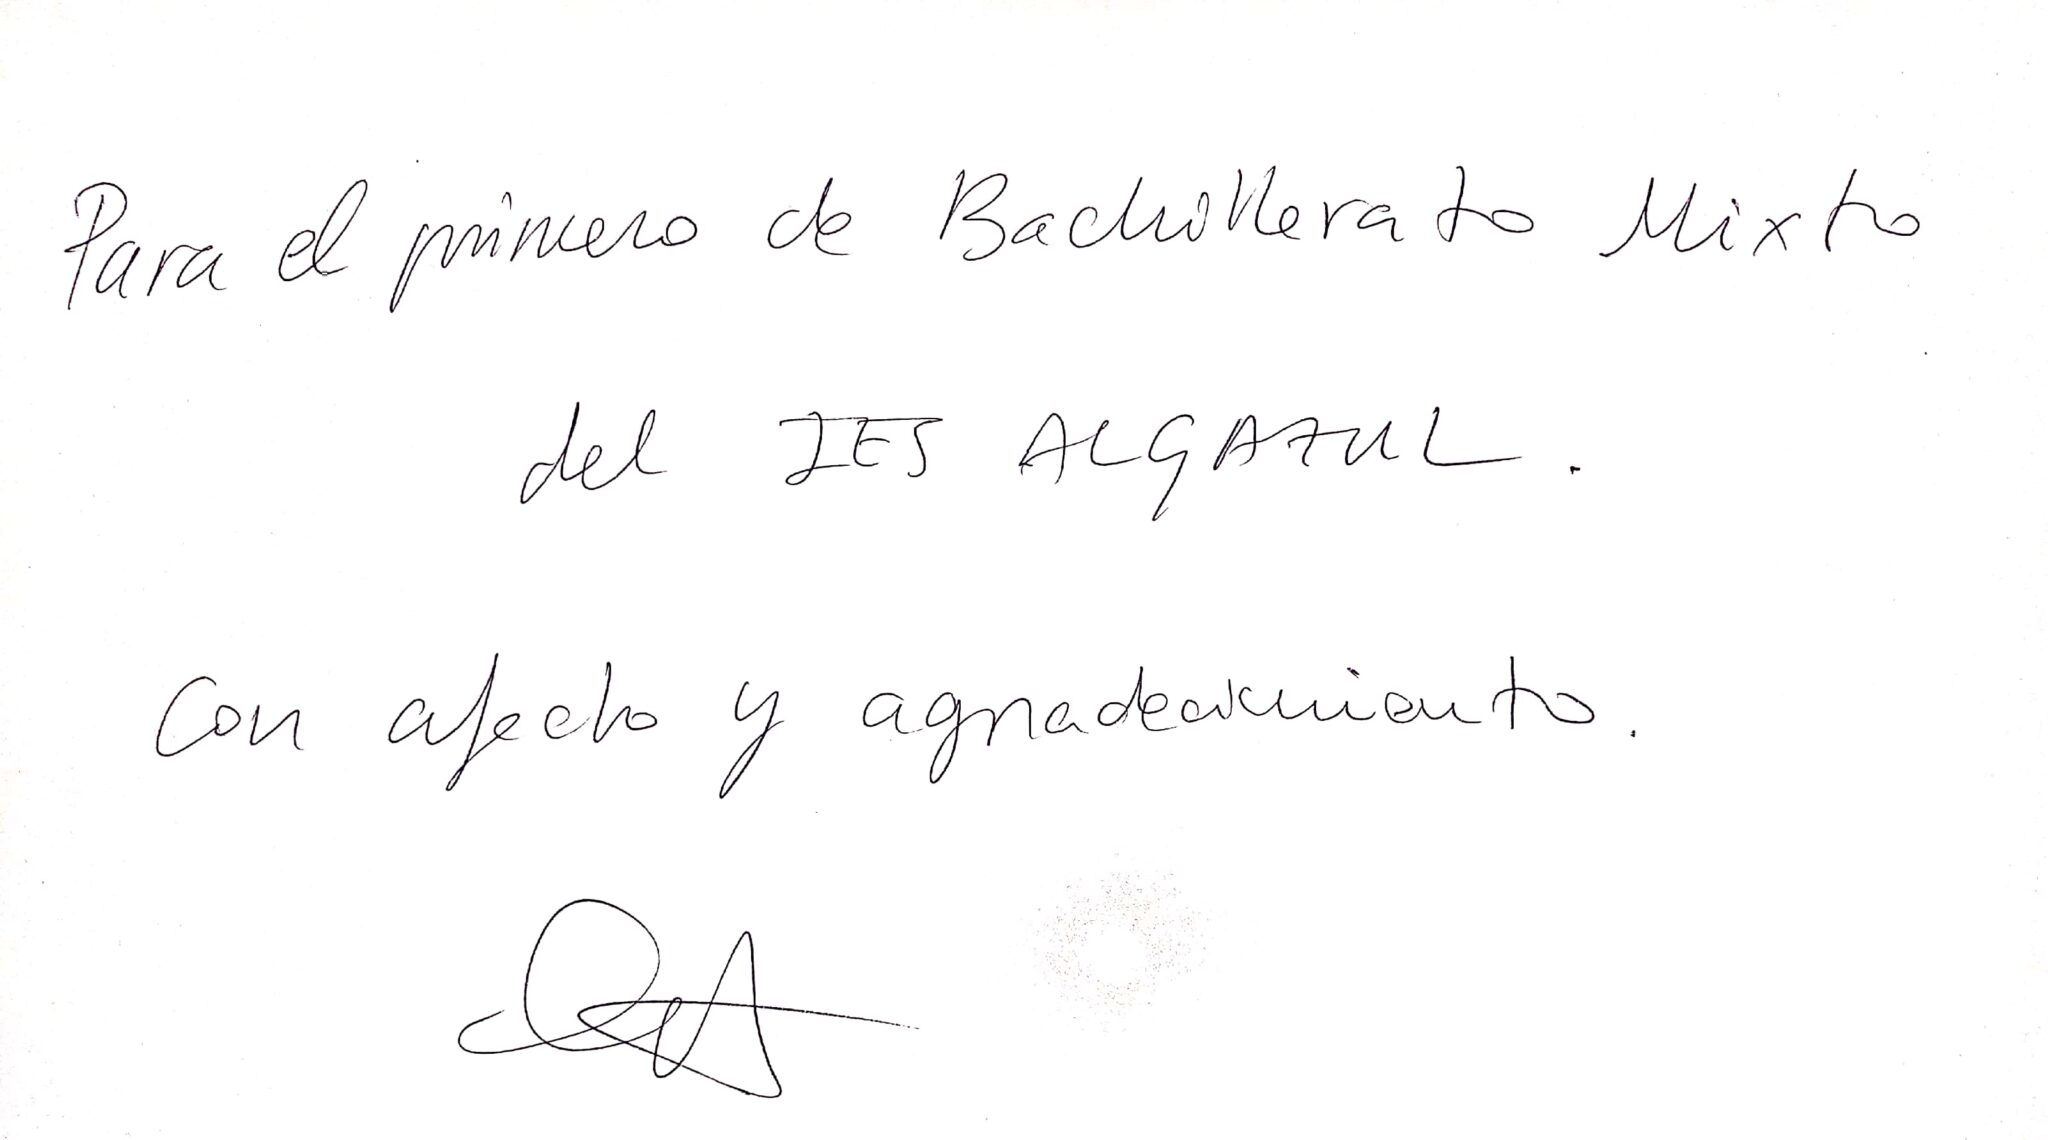 Para el primero de Bachillerato Mixto
del IES ALGAZUL.
Con afecto y agradecimiento.